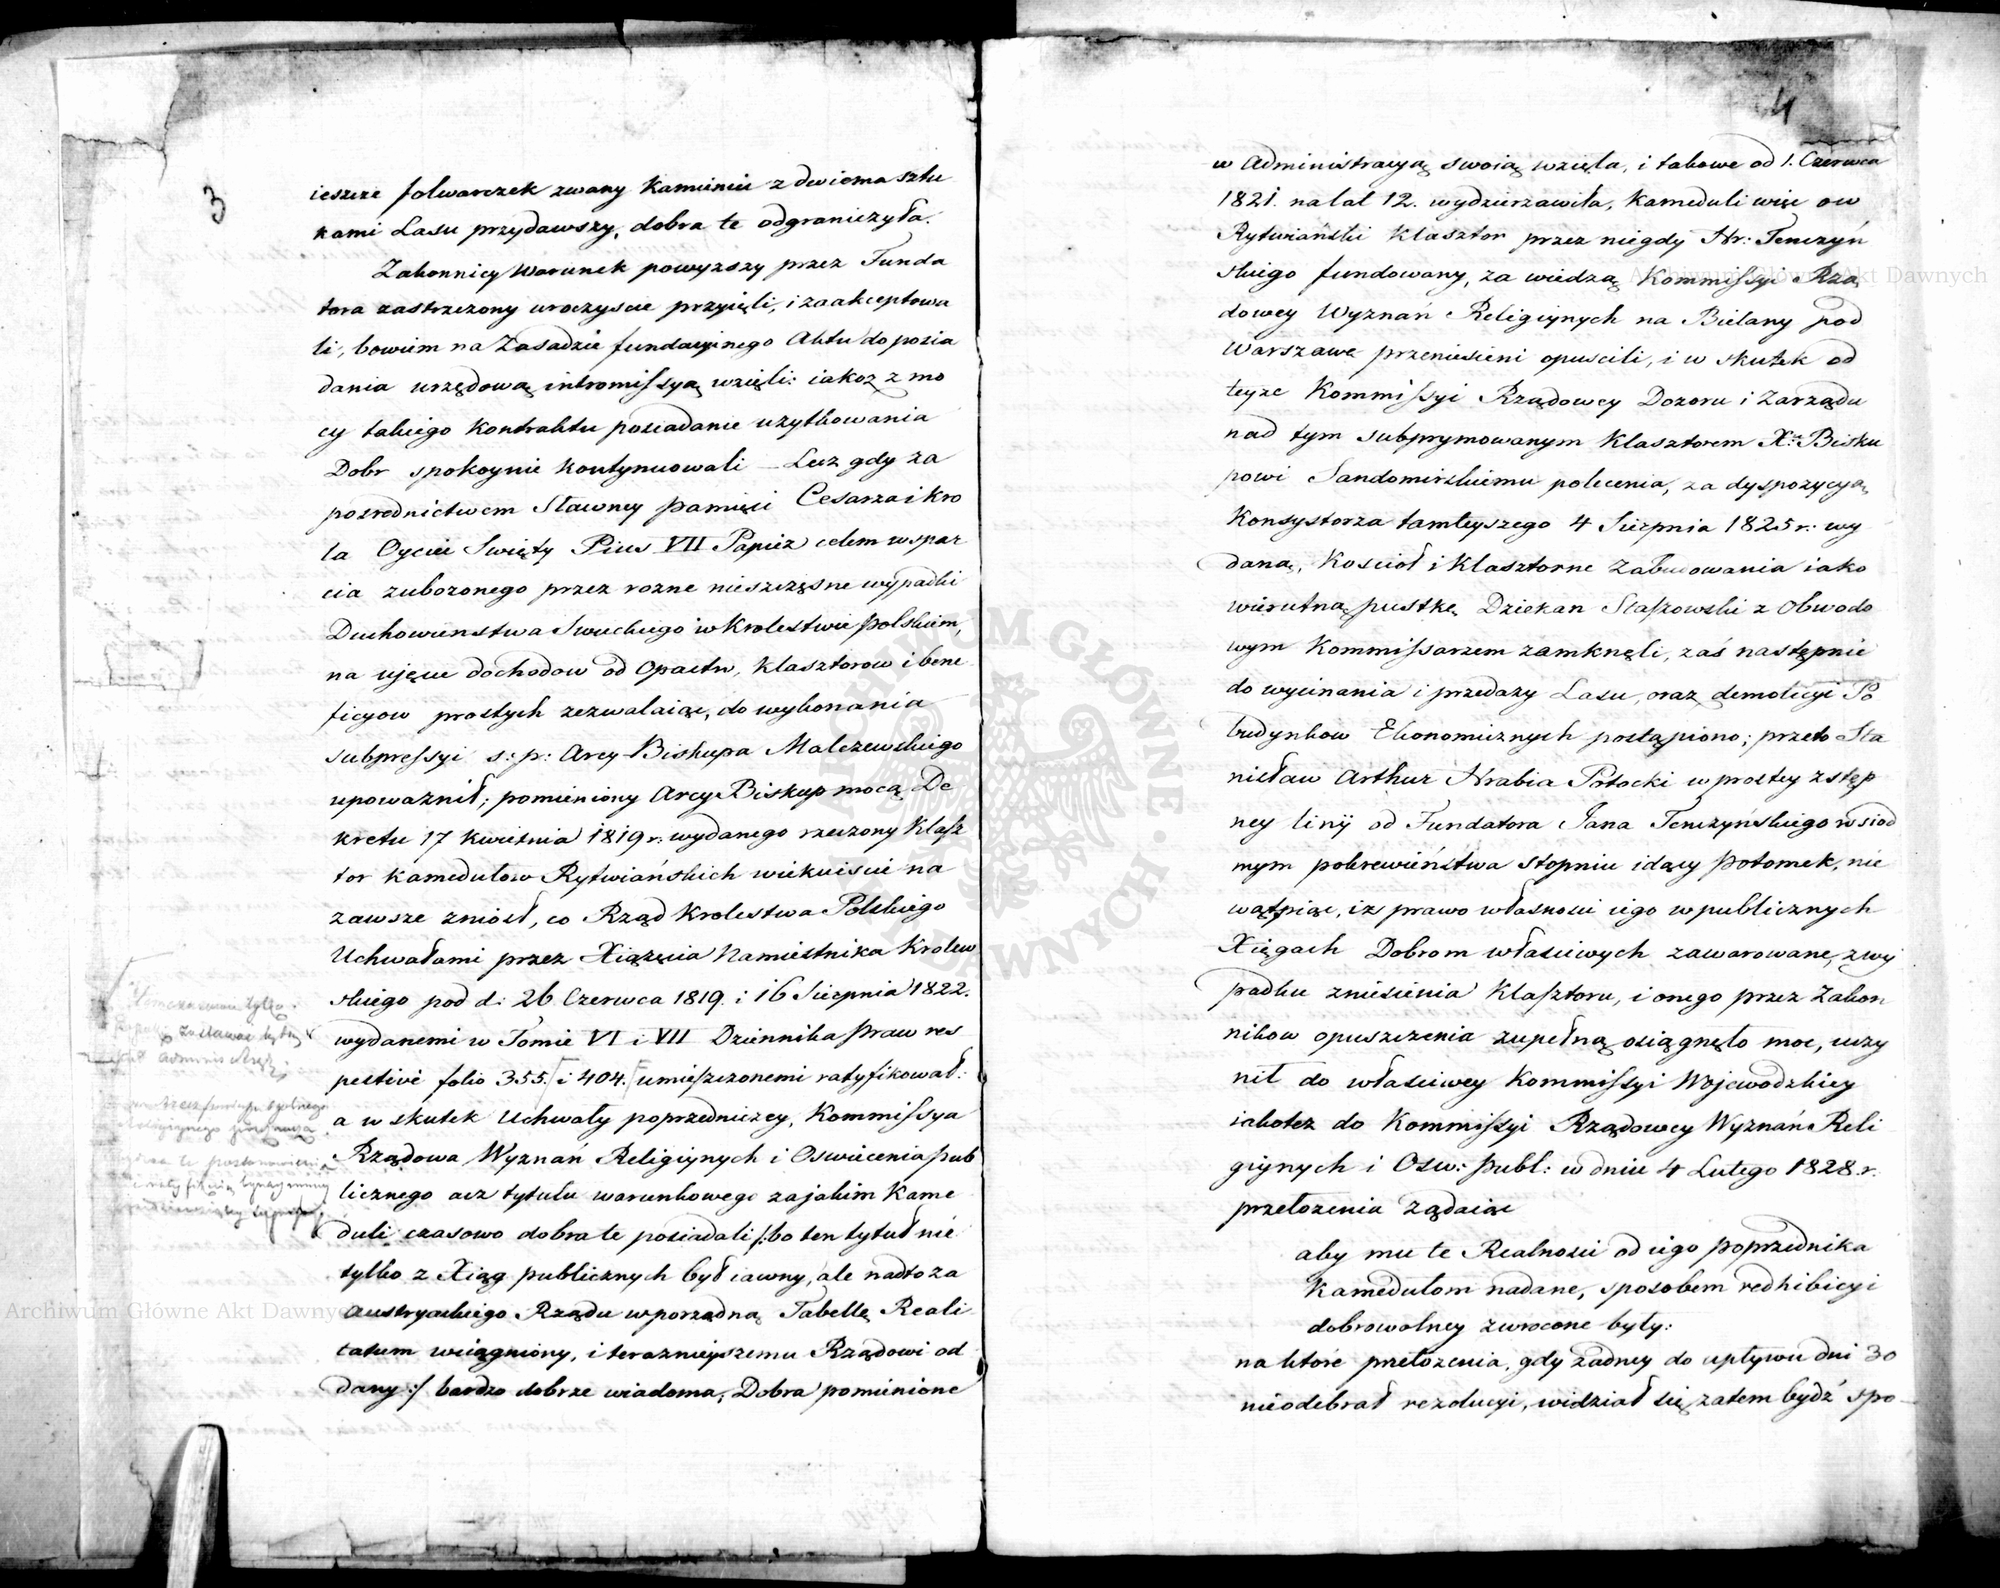 3
ieszcze folwarczek zwany Kamieniec z dwiema sztu
kami Lasu przydawszy, dobra te odgraniczyła.
Zakonnicy Warunek powyzszy przez Funda
tora zastrzezony uroczyscie przyięli, i zaakceptowa
li, bowiem na Zasadzie fundacyinego Aktu do posia
dania urzędową intromissyą wzięli: iakoz z mo
cy takiego Kontraktu posiadanie uzytkowania
Dobr spokoynie kontynuowali – Lecz gdy za
posrednictwem Sławney Pamięci Cesarza i Kro
la Oyciec Swięty Pius VII Papiez celem wspar
cia zubozonego przez rozne nieszczęsne wypadki
Duchowienstwa Swieckiego w Krolestwie Polskiem,
na ujęcie dochodow od Opactw, Klasztorow i bene
ficyow prostych zezwalaiąc, do wykonania
subpressyi s: p: Arcy-Biskupa Malczewskiego
upowaznił; pomieniony Arcy Biskup mocą De
kretu 17 Kwietnia 1819 r. wydanego rzeczony Klasz
tor Kamedułow Rytwiańskich wiekuiscie na
zawsze zniosł, co Rząd Krolestwa Polskiego
Uchwałami przez Xiązęcia Namiestnika Krolew
skiego pod d. 26 Czerwca 1819. i 16 Sierpnia 1822.
wydanemi w Tomie VI i VII Dziennika Praw res
pective folio 355. i 404. umieszczonemi ratyfikował:
a w skutek Uchwały poprzedniczey, Kommissya
Rządowa Wyznań Religiynych i Oswiecenia pub
licznego acz tytułu warunkowego za jakim Kame
duli czasowo dobra te posiadali /: bo ten tytuł nie
tylko z Xiąg publicznych był iawny, ale nadto za
Austryackiego Rządu w porządną Tabellę Reali
tatum wciągniony, i teraznieyszemu Rządowi od
dany :/ bardzo dobrze wiadoma, Dobra pomienione
4
w Administracyą swoią wzięła, i takowe od 1. Czerwca
1821. na lat 12. wydzierzawiła, Kameduli więc ow
Rytwiański Klasztor przez niegdy Hr: Tenczyń
skiego fundowany, za wiedzą Kommissyi Rzą
dowey Wyznań Religiynych na Bielany pod
Warszawę przeniesieni opuscili, i w skutek od
teyze Kommissyi Rządowey Dozoru i Zarządu
nad tym subprymowanym Klasztorem Xu Bisku
powi Sandomirskiemu polecenia, za dyspozycyą
Konsystorza tamteyszego 4 Sierpnia 1825 r. wy
daną, Kosciół i Klasztorne Zabudowania iako
wierutną pustkę Dziekan Staszowski z Obwodo
wym Kommissarzem zamknęli, zaś następnie
do wycinania i przedazy Lasu, oraz demolicyi Po
budynkow Ekonomicznych postąpiono; przeto Sta
nisław Arthur Hrabia Potocki w prostey zstęp
ney linij od Fundatora Jana Tenczyńskiego w siod
mym pokrewieństwa stopniu idący Potomek, nie
wątpiąc, iz prawo własnosci iego w publicznych
Xięgach Dobrom właściwych zawarowane, z wy
padku zniesienia Klasztoru, i onego przez Zakon
nikow opuszczenia zupełną osiągnęło moc, uczy
nił do właściwey Kommissyi Wojewodzkiey
iakotez do Kommissyi Rządowey Wyznań Reli
giynych i Osw: publ: w dniu 4 Lutego 1828. r.
przełozenia ządaiąc
aby mu te Realnosci od iego poprzednika
Kamedułom nadane, sposobem redhibicyi
dobrowolney zwrocone były:
na ktore przełozenia, gdy zadney do upływu dni 30
nieodebrał rezolucyi, widział się zatem bydź spo-
Archiwum Główne Akt Dawnych
Archiwum Główne Akt Dawnych
ARCHIWUM GŁÓWNE AKT DAWNYCH